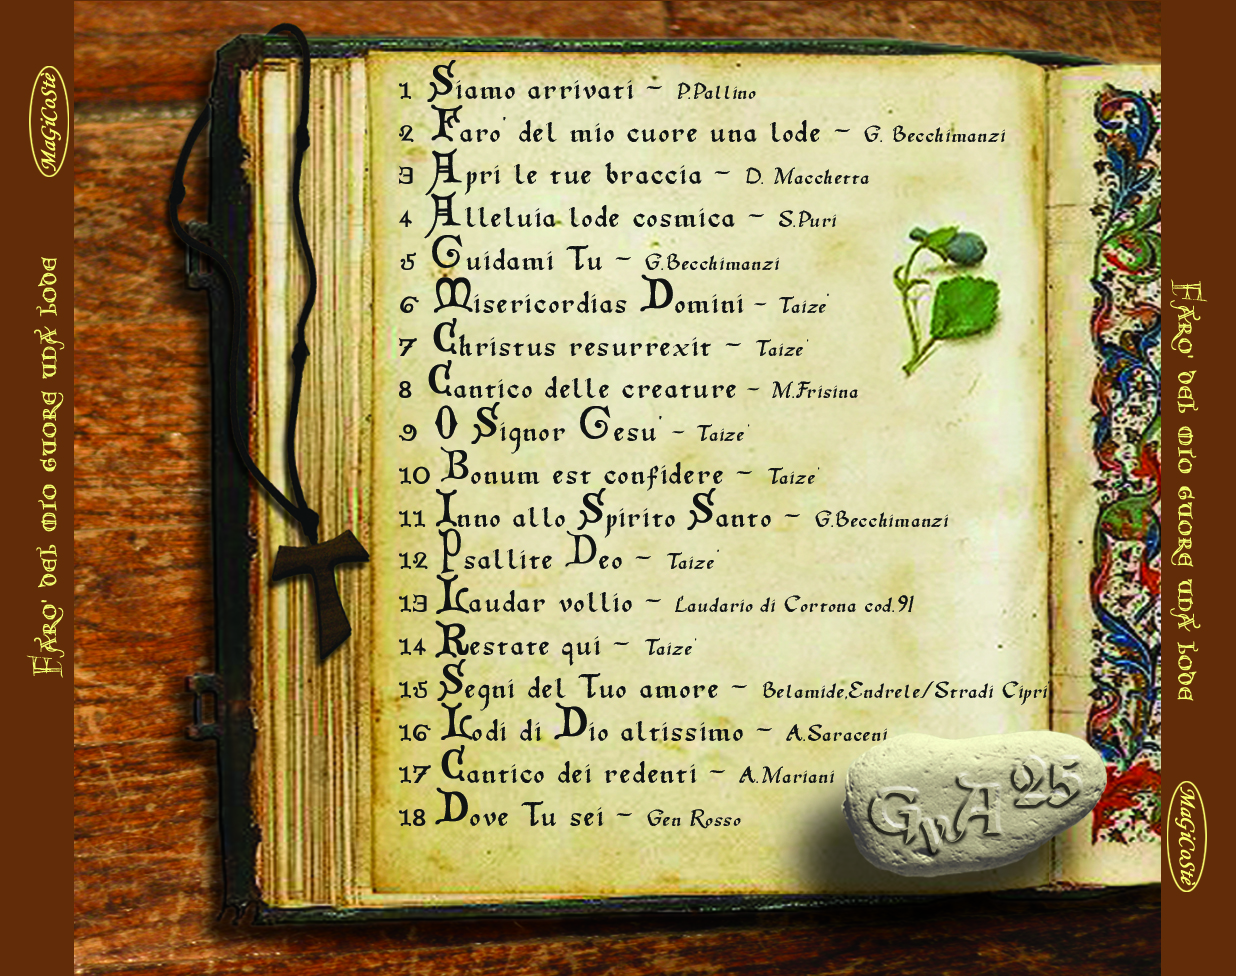 MaGiCoStè
Faro' del mio cuore una lode
1 Siamo arrivati ~ P.Pallino
2 Faro' del mio cuore una lode ~ G. Becchimanzi
3 Apri le tue braccia ~ D. Macchetta
4 Alleluia lode cosmica ~ S.Puri
5 Guidami Tu ~ G.Becchimanzi
6 Misericordias Domini ~ Taize'
7 Christus resurrexit ~ Taize'
8 Cantico delle creature ~ M.Frisina
9 O Signor Gesu' ~ Taize'
10 Bonum est confidere ~ Taize'
11 Inno allo Spirito Santo ~ G.Becchimanzi
12 Psallite Deo ~ Taize'
13 Laudar vollio ~ Laudario di Cortona cod.91
14 Restate qui ~ Taize'
15 Segni del Tuo amore ~ Belamide,Endrele/Stradi Cipri
16 Lodi di Dio altissimo ~ A.Saraceni
17 Cantico dei redenti ~ A.Mariani
18 Dove Tu sei ~ Gen Rosso
25
Faro' del mio cuore una lode
MaGiCoStè